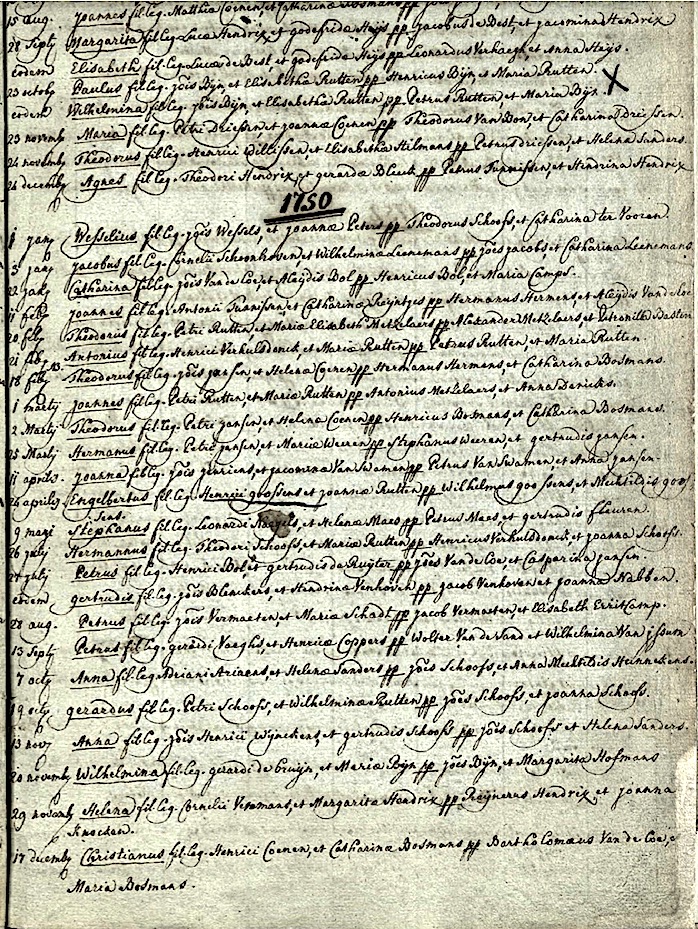 15 aug. Joannes fil. leg. Matthiæ Coenen, et Catharinæ Bosmans pp
28 Septs Margarita fil leg Lucæ Hendrix, et godefridæ Heijs pp Jacobus de Best, et Jacomina Hendrix
eodem Elisabeth fil leg. Lucæ de Best et godefridæ Heijs pp Leonardus Verhaegh, et Anna Heijs.
23 octob Paulus fil leg. Jois Bijn, et Elisabetha Rutten pp Henricus Bijn et Maria Rutten. X
eodem Wilhelmina fil leg. Jois Bijn et Elisabetha Rutten, pp Petrus Rutten, et Maria Bijn.
23 novemb Maria fil leg. Petri Driessen, et Joannæ Coenen pp Theodorus Van Bon, et Catharina Driessen.
24 novemb Theodorus fil leg. Henrici Willissen, et Elisabethæ Hilmans pp Petrus driessen, et Helena Sanders
26 decemb Agnes fil leg. Theodori Hendrix, et gerardæ Bleeck pp Petrus Tunnissen, et Hendrina Hendrix
1750
1 jan Wesselius fil leg. Jois Wessels, et Joannæ Peters pp Theodorus Schoofs, et Catharina ter Vooren.
3 jan Jacobus fil leg. Cornelii Schoonhoven et Wilhelmina Leenemans pp Jois Jacobs, et Catharina Leenemans
22 jan Catharina fil leg. Jois Van de Loe, et Aleijdis Bol pp Henricus Bol, et Maria Camps.
feb Joannes fil leg. Antonii Tunnissen, et Catharinæ Reijntjes pp Hermanus Hermens, et Aleijdis Van de Loe
20 feb Theodorus fil leg. Petri Rutten, et Mariæ Elisabeth Metzelaers, pp Alexander Metzelaers, et Petronilla Daslin
21 feb Antonius fil leg. Henrici Verhulsdonck, et Mariæ Rutten pp Petrus Rutten, et Maria Rutten.
18 feb Theodorus fil leg. Jois Jansen, et Helena Coenen pp Hermanus Hermens, et Catharina Bosmans.
1 martij Joannes fil leg. Petri Rutten, et Mariæ Rutten pp Antonius Metzelaers, et Anna Dericks.
2 Martij Theodorus fil leg. Petri Jansen, et Helena Coenen pp Henricus Bosmans, et Catharina Bosmans.
25 Martij Hermanus fil leg. Petri Jansen, et Mariæ Weeren pp Stephanus Weeren, et gertrudis Jansen.
11 aprilis. Joanna fil leg. Jois Henriens, et Jacomina Van Swamen pp Petrus Van Swamen, et Anna Jansen.
26 aprilis Engelbertus fil leg. Henrici goossens, et Joannæ Rutten pp Wilhelmus goossens, et Mechtildis goos
sens.
9 maji Stephanus fil leg. Leonardi Naegels, et Helenæ Maes pp Petrus Maes, et gertrudis fleuren.
26 july Hermannus fil leg. Theodori Schoofs, et Mariæ Rutten pp Henricus Verhulsdonck, et Joanna Schoofs.
27 july Petrus fil leg. Henrici Bol, et gertrudis de Ruijter pp Jois Van de Loe, et Casparina Jansen.
eodem gertrudis fil leg. Jois Blenckers, et Hendrina Venhoven pp Jacob Venhoven et Joanna Nabben.
28 aug. Petrus fil leg. Jois Vermaeten, et Maria Schadt pp Jacob Vermaeten, et Elisabeth Erritcamp.
13 Septs Petrus fil leg. gerardi Vaeghs, et Henricæ Coppers pp Wolter Van de Sand et Wilhelmina Van Issum.
7 octs Anna fil. leg. Adriani Ariaens, et Helenæ Sanders pp Jois Schoofs, et Anna Mechtildis Heinnekens.
19 octs gerardus fil leg. Petri Schoofs, et Wilhelminæ Rutten pp Jois Schoofs, et Joanna Schoofs.
13 novs Anna fil leg. Jois Henrici Wijnekens, et gertrudis Schoofs pp Jois Schoofs et Helena Sanders.
20 novemb Wilhelmina fil leg. gerardi de Bruijn, et Mariæ Bijn pp Jois Bijn, et Margarita Hofmans
29 novemb Helena fil leg. Cornelii Veramans, et Margarita Hendrix pp Reijnerus Hendrix, et Joanna
Knocken.
17 decemb Christianus fil leg. Henrici Coenen, et Catharinæ Bosmans pp Bartholomæus Van de Loe, e
Maria Bosmans.